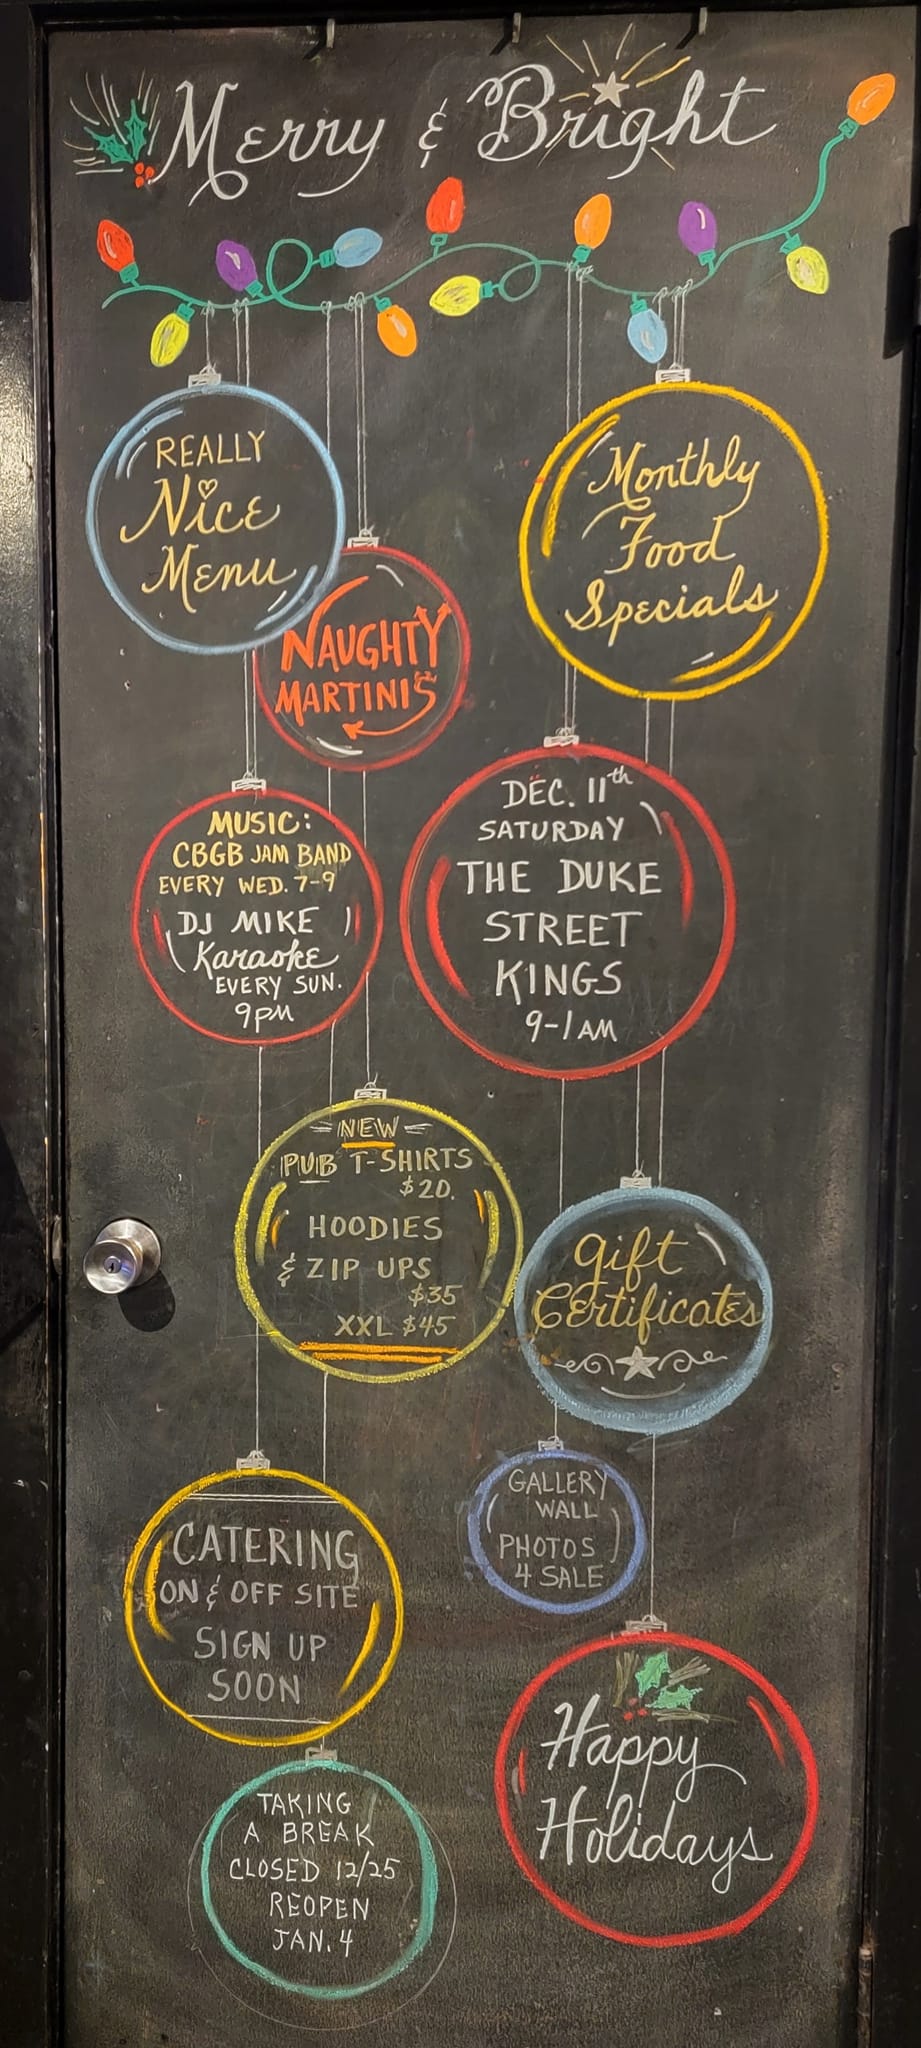 Merry & Bright
REALLY
Nice
Menu
Monthly
Food
Specials
NAUGHTY
MARTINIS
MUSIC:
CBGB JAM BAND
EVERY WED. 7-9
DJ MIKE
Karaoke
EVERY SUN.
9PM
DEC. 11th
SATURDAY
THE DUKE
STREET
KINGS
9-1AM
NEW
PUB T-SHIRTS
$20.
HOODIES
& ZIP UPS
$35
XXL $45
Gift
Certificates
CATERING
ON & OFF SITE
SIGN UP
SOON
GALLERY
WALL
PHOTOS
4 SALE
TAKING
A BREAK
CLOSED 12/25
REOPEN
JAN. 4
Happy
Holidays